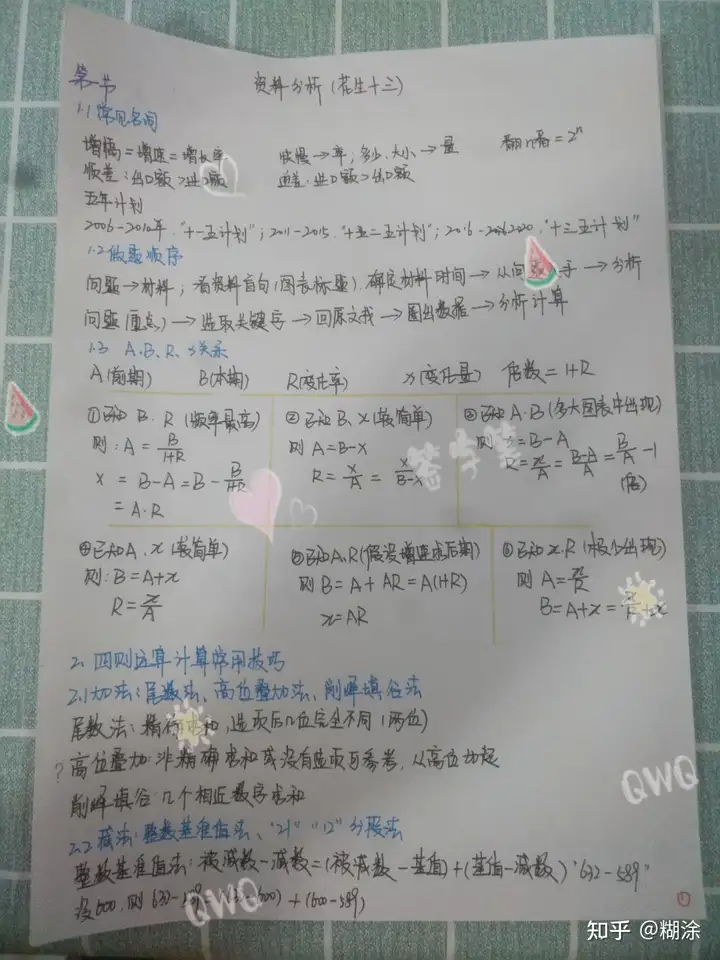 第一节
资料分析(花生十三)
1.1 常见名词
增幅=增速=增长率 快慢→率;多少、大小→量 翻n番=2ⁿ
顺差:出口额>进口额 逆差:进口额>出口额
五年计划
2006-2010年,"十一五计划";2011-2015,"十二五计划";2016-2020,"十三五计划"
1.2 做题顺序
问题→材料;看资料首句(图表标题),确定材料时间→从问题入手→分析
问题(重点)→选取关键字→回原文找→圈出数据→分析计算
1.3 A、B、R、x关系
A(前期) B(本期) R(变化率) x(变化量) 倍数=1+R
①已知B、R(频率最高)
则:A=B/(1+R)
x=B-A=B-B/(1+R)
=A·R
②已知B、x(较简单)
则A=B-x
R=x/A=x/(B-x)
③已知A、B(多大图表中出现)
则x=B-A
R=x/A=(B-A)/A=B/A-1
(倍)
签字笔
④已知A、x(较简单)
则:B=A+x
R=x/A
⑤已知A、R(假设增速求后期)
则B=A+AR=A(1+R)
x=AR
⑥已知x、R(极少出现)
则A=x/R
B=A+x=x/R+x
2. 四则运算计算常用技巧
2.1 加法:尾数法、高位叠加法、削峰填谷法
尾数法:精确求和,选项后几位完全不同(两位)
?高位叠加:非精确求和或没有选项可参考,从高位加起
削峰填谷:几个相近数字求和
QWQ
2.2 减法:整数基准值法、"21""12"分段法
整数基准值法:被减数-减数=(被减数-基值)+(基值-减数)"632-589"
设600,则632-589=(632-600)+(600-589)
QWQ
①
知乎 @糊涂